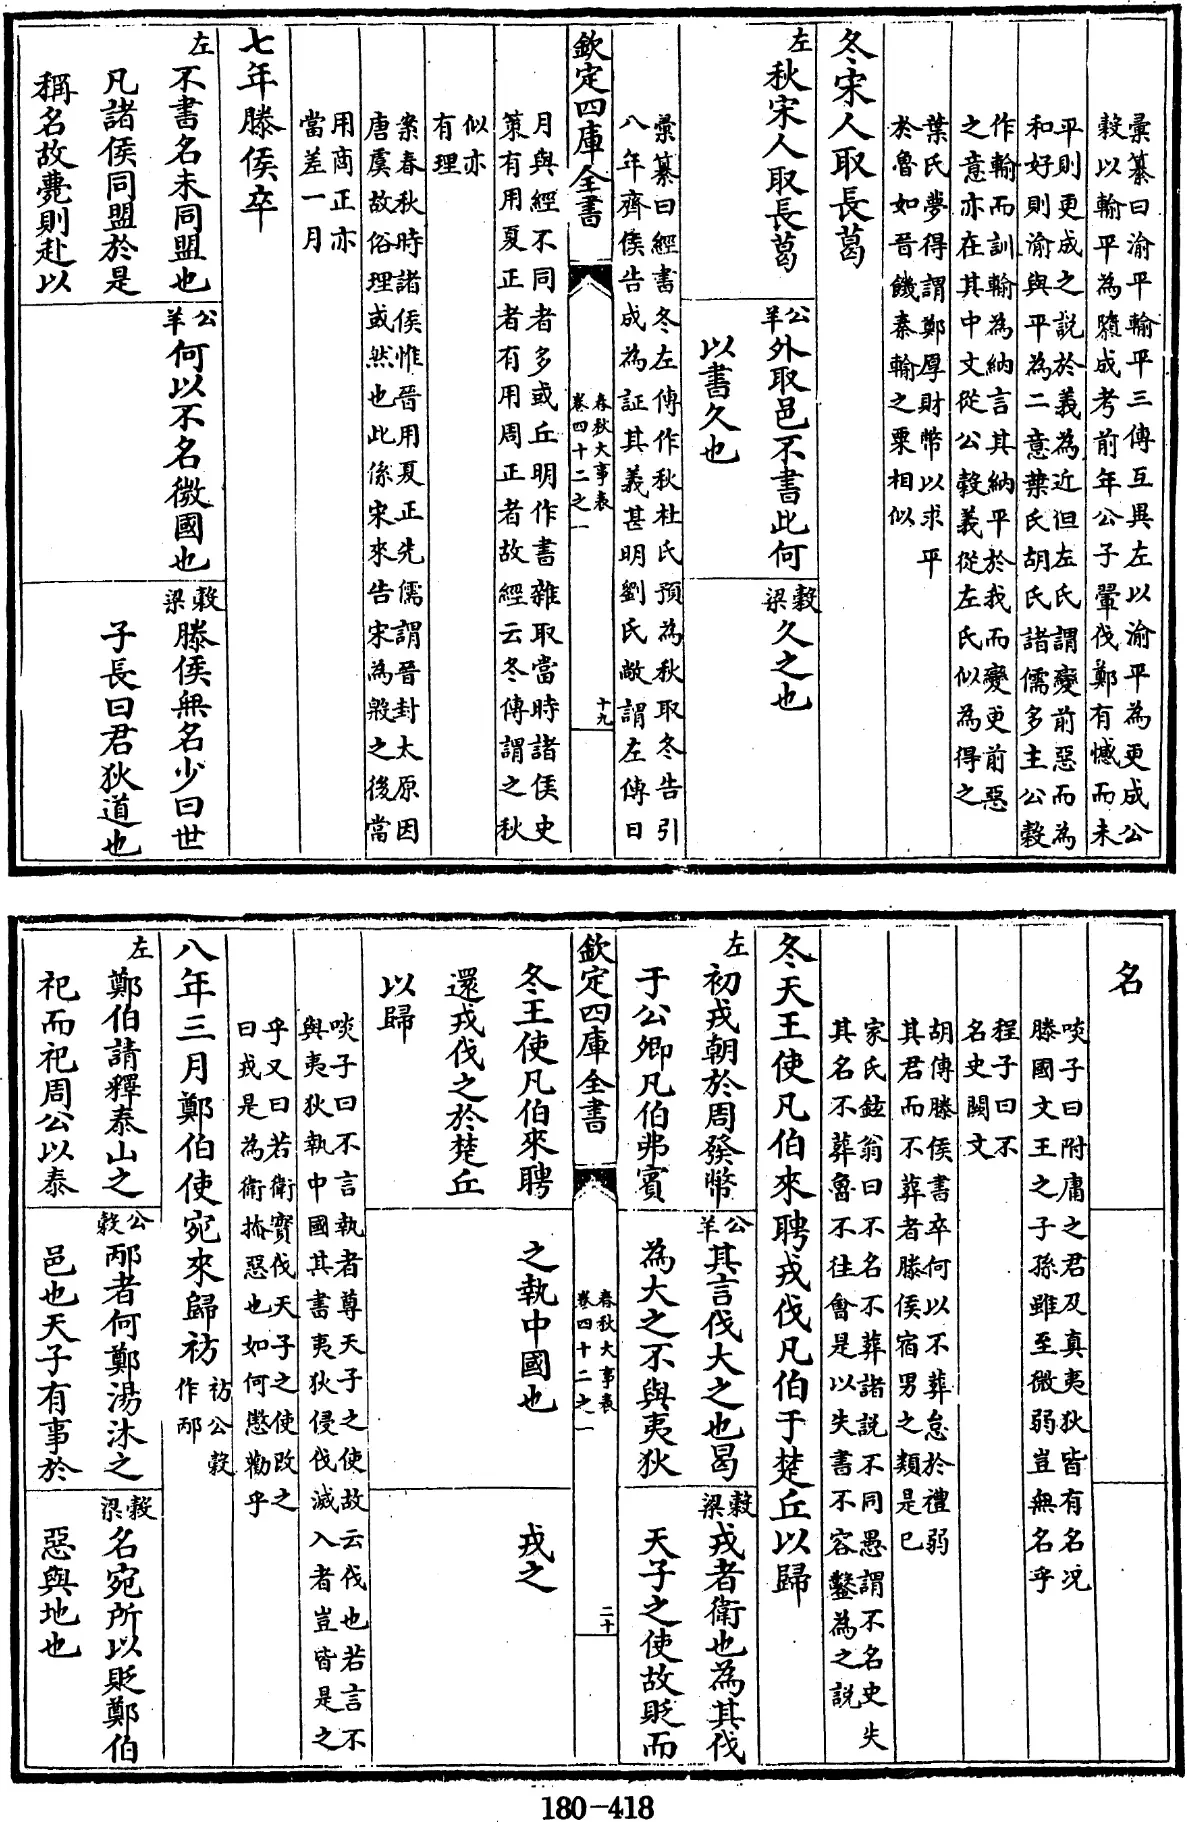 彚纂曰渝平輸平三傳互異左以渝平為更成公
穀以輸平為隳成考前年公子翬伐鄭有憾而未
平則更成之説於義為近但左氏謂變前惡而為
和好則渝與平為二意葉氏胡氏諸儒多主公穀
作輸而訓輸為納言其納平於我而變更前惡
之意亦在其中文從公穀義從左氏似為得之
葉氏夢得謂鄭厚財幣以求平
於魯如晉饑秦輸之粟相似
冬宋人取長葛
左
秋宋人取長葛
公羊
外取邑不書此何
以書久也
穀梁
久之也
彚纂曰經書冬左傳作秋杜氏預為秋取冬告引
八年齊侯告成為証其義甚明劉氏敞謂左傳日
欽定四庫全書
春秋大事表
卷四十二之一
十九
月與經不同者多或丘明作書雜取當時諸侯史
策有用夏正者有用周正者故經云冬傳謂之秋
似亦
有理
案春秋時諸侯惟晉用夏正先儒謂晉封太原因
唐虞故俗理或然也此係宋來告宋為殷之後當
用商正亦
當差一月
七年滕侯卒
左
不書名未同盟也
凡諸侯同盟於是
稱名故薨則赴以
公羊
何以不名微國也
穀梁
滕侯無名少曰世
子長曰君狄道也
名
啖子曰附庸之君及真夷狄皆有名况
滕國文王之子孫雖至微弱豈無名乎
程子曰不
名史闕文
胡傳滕侯書卒何以不葬怠於禮弱
其君而不葬者滕侯宿男之類是已
家氏鉉翁曰不名不葬諸説不同愚謂不名史失
其名不葬魯不往會是以失書不容鑿為之説
冬天王使凡伯來聘戎伐凡伯于楚丘以歸
左
初戎朝於周發幣
于公卿凡伯弗賓
公羊
其言伐大之也曷
為大之不與夷狄
穀梁
戎者衛也為其伐
天子之使故貶而
欽定四庫全書
春秋大事表
卷四十二之一
二十
冬王使凡伯來聘
還戎伐之於楚丘
以歸
之執中國也
戎之
啖子曰不言執者尊天子之使故云伐也若言不
與夷狄執中國其書夷狄侵伐滅入者豈皆是之
乎又曰若衛實伐天子之使改之
曰戎是為衛掩惡也如何懲勸乎
八年三月鄭伯使宛來歸祊
祊公穀
作邴
左
鄭伯請釋泰山之
祀而祀周公以泰
公穀
邴者何鄭湯沐之
邑也天子有事於
穀梁
名宛所以貶鄭伯
惡與地也
180-418